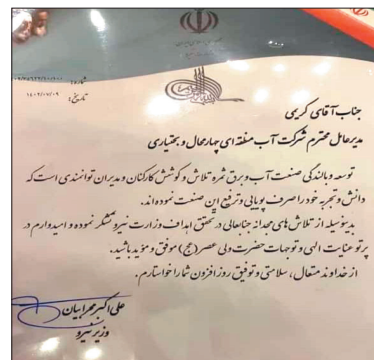 شماره:
تاریخ: ۱۴۰۲/۰۷/۰۹
جناب آقای کریمی
مدیرعامل محترم شرکت آب منطقه ای چهارمحال و بختیاری
توسعه و بالندگی صنعت آب و برق ثمره تلاش و کوشش کارکنان و مدیران توانمندی است که
دانش و تجربه خود را صرف پویایی و ترفیع این صنعت نموده اند.
بدینوسیله از تلاش های مجدانه جنابعالی در تحقق اهداف وزارت نیرو تشکر نموده و امیدوارم در
پرتو عنایت الهی و توجهات حضرت ولی عصر (عج) موفق و مؤید باشید.
از خداوند متعال، سلامتی و توفیق روزافزون شما را خواستارم.
علی اکبر محرابیان
وزیر نیرو